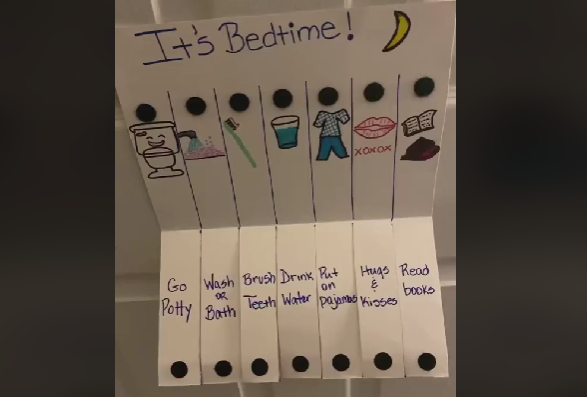 It's Bedtime!
xoxox
Go
Potty
Wash
or
Bath
Brush
Teeth
Drink
Water
Put
on
pajamas
Hugs
&
Kisses
Read
books